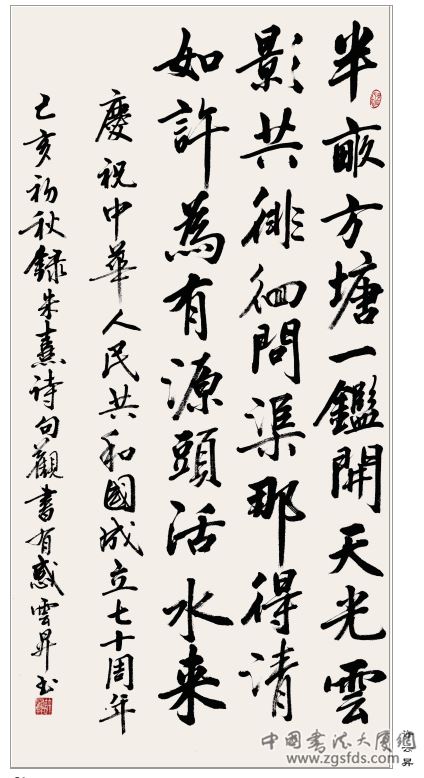 半畝方塘一鑑開天光雲
影共徘徊問渠那得清
如許為有源頭活水来
慶祝中華人民共和國成立七十周年
己亥初秋録朱熹詩句觀書有感雲昇书
中國書法大廈網
www.zgsfds.com
云昇